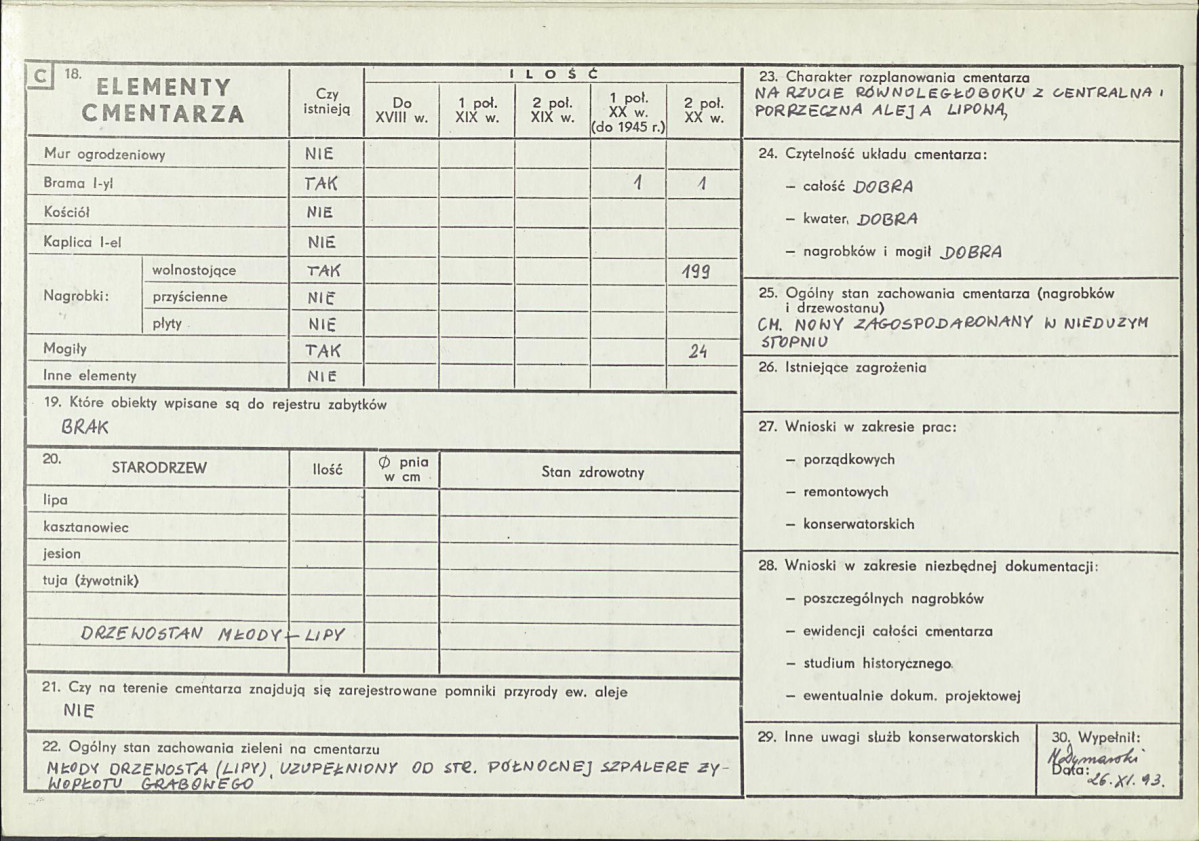 C 18. ELEMENTY CMENTARZA
Czy istnieją
ILOŚĆ
Do XVIII w.
1 poł. XIX w.
2 poł. XIX w.
1 poł. XX w. (do 1945 r.)
2 poł. XX w.
Mur ogrodzeniowy NIE
Brama I-yl TAK 1 1
Kościół NIE
Kaplica I-el NIE
Nagrobki:
wolnostojące TAK 199
przyścienne NIE
płyty NIE
Mogiły TAK 24
Inne elementy NIE
19. Które obiekty wpisane są do rejestru zabytków
BRAK
20. STARODRZEW Ilość Ø pnia w cm Stan zdrowotny
lipa
kasztanowiec
jesion
tuja (żywotnik)
DRZEWOSTAN MŁODY – LIPY
21. Czy na terenie cmentarza znajdują się zarejestrowane pomniki przyrody ew. aleje
NIE
22. Ogólny stan zachowania zieleni na cmentarzu
MŁODY DRZEWOSTA (LIPY), UZUPEŁNIONY OD STR. PÓŁNOCNEJ SZPALERE ŻY-
WOPŁOTU GRABOWEGO
23. Charakter rozplanowania cmentarza
NA RZUCIE RÓWNOLEGŁOBOKU Z CENTRALNA I
PORRZECZNA ALEJA LIPOWĄ
24. Czytelność układu cmentarza:
– całość DOBRA
– kwater, DOBRA
– nagrobków i mogił DOBRA
25. Ogólny stan zachowania cmentarza (nagrobków
i drzewostanu)
CM. NOWY ZAGOSPODAROWANY W NIEDUŻYM
STOPNIU
26. Istniejące zagrożenia
27. Wnioski w zakresie prac:
– porządkowych
– remontowych
– konserwatorskich
28. Wnioski w zakresie niezbędnej dokumentacji:
– poszczególnych nagrobków
– ewidencji całości cmentarza
– studium historycznego
– ewentualnie dokum. projektowej
29. Inne uwagi służb konserwatorskich
30. Wypełnił:
Data: 26.XI.93.